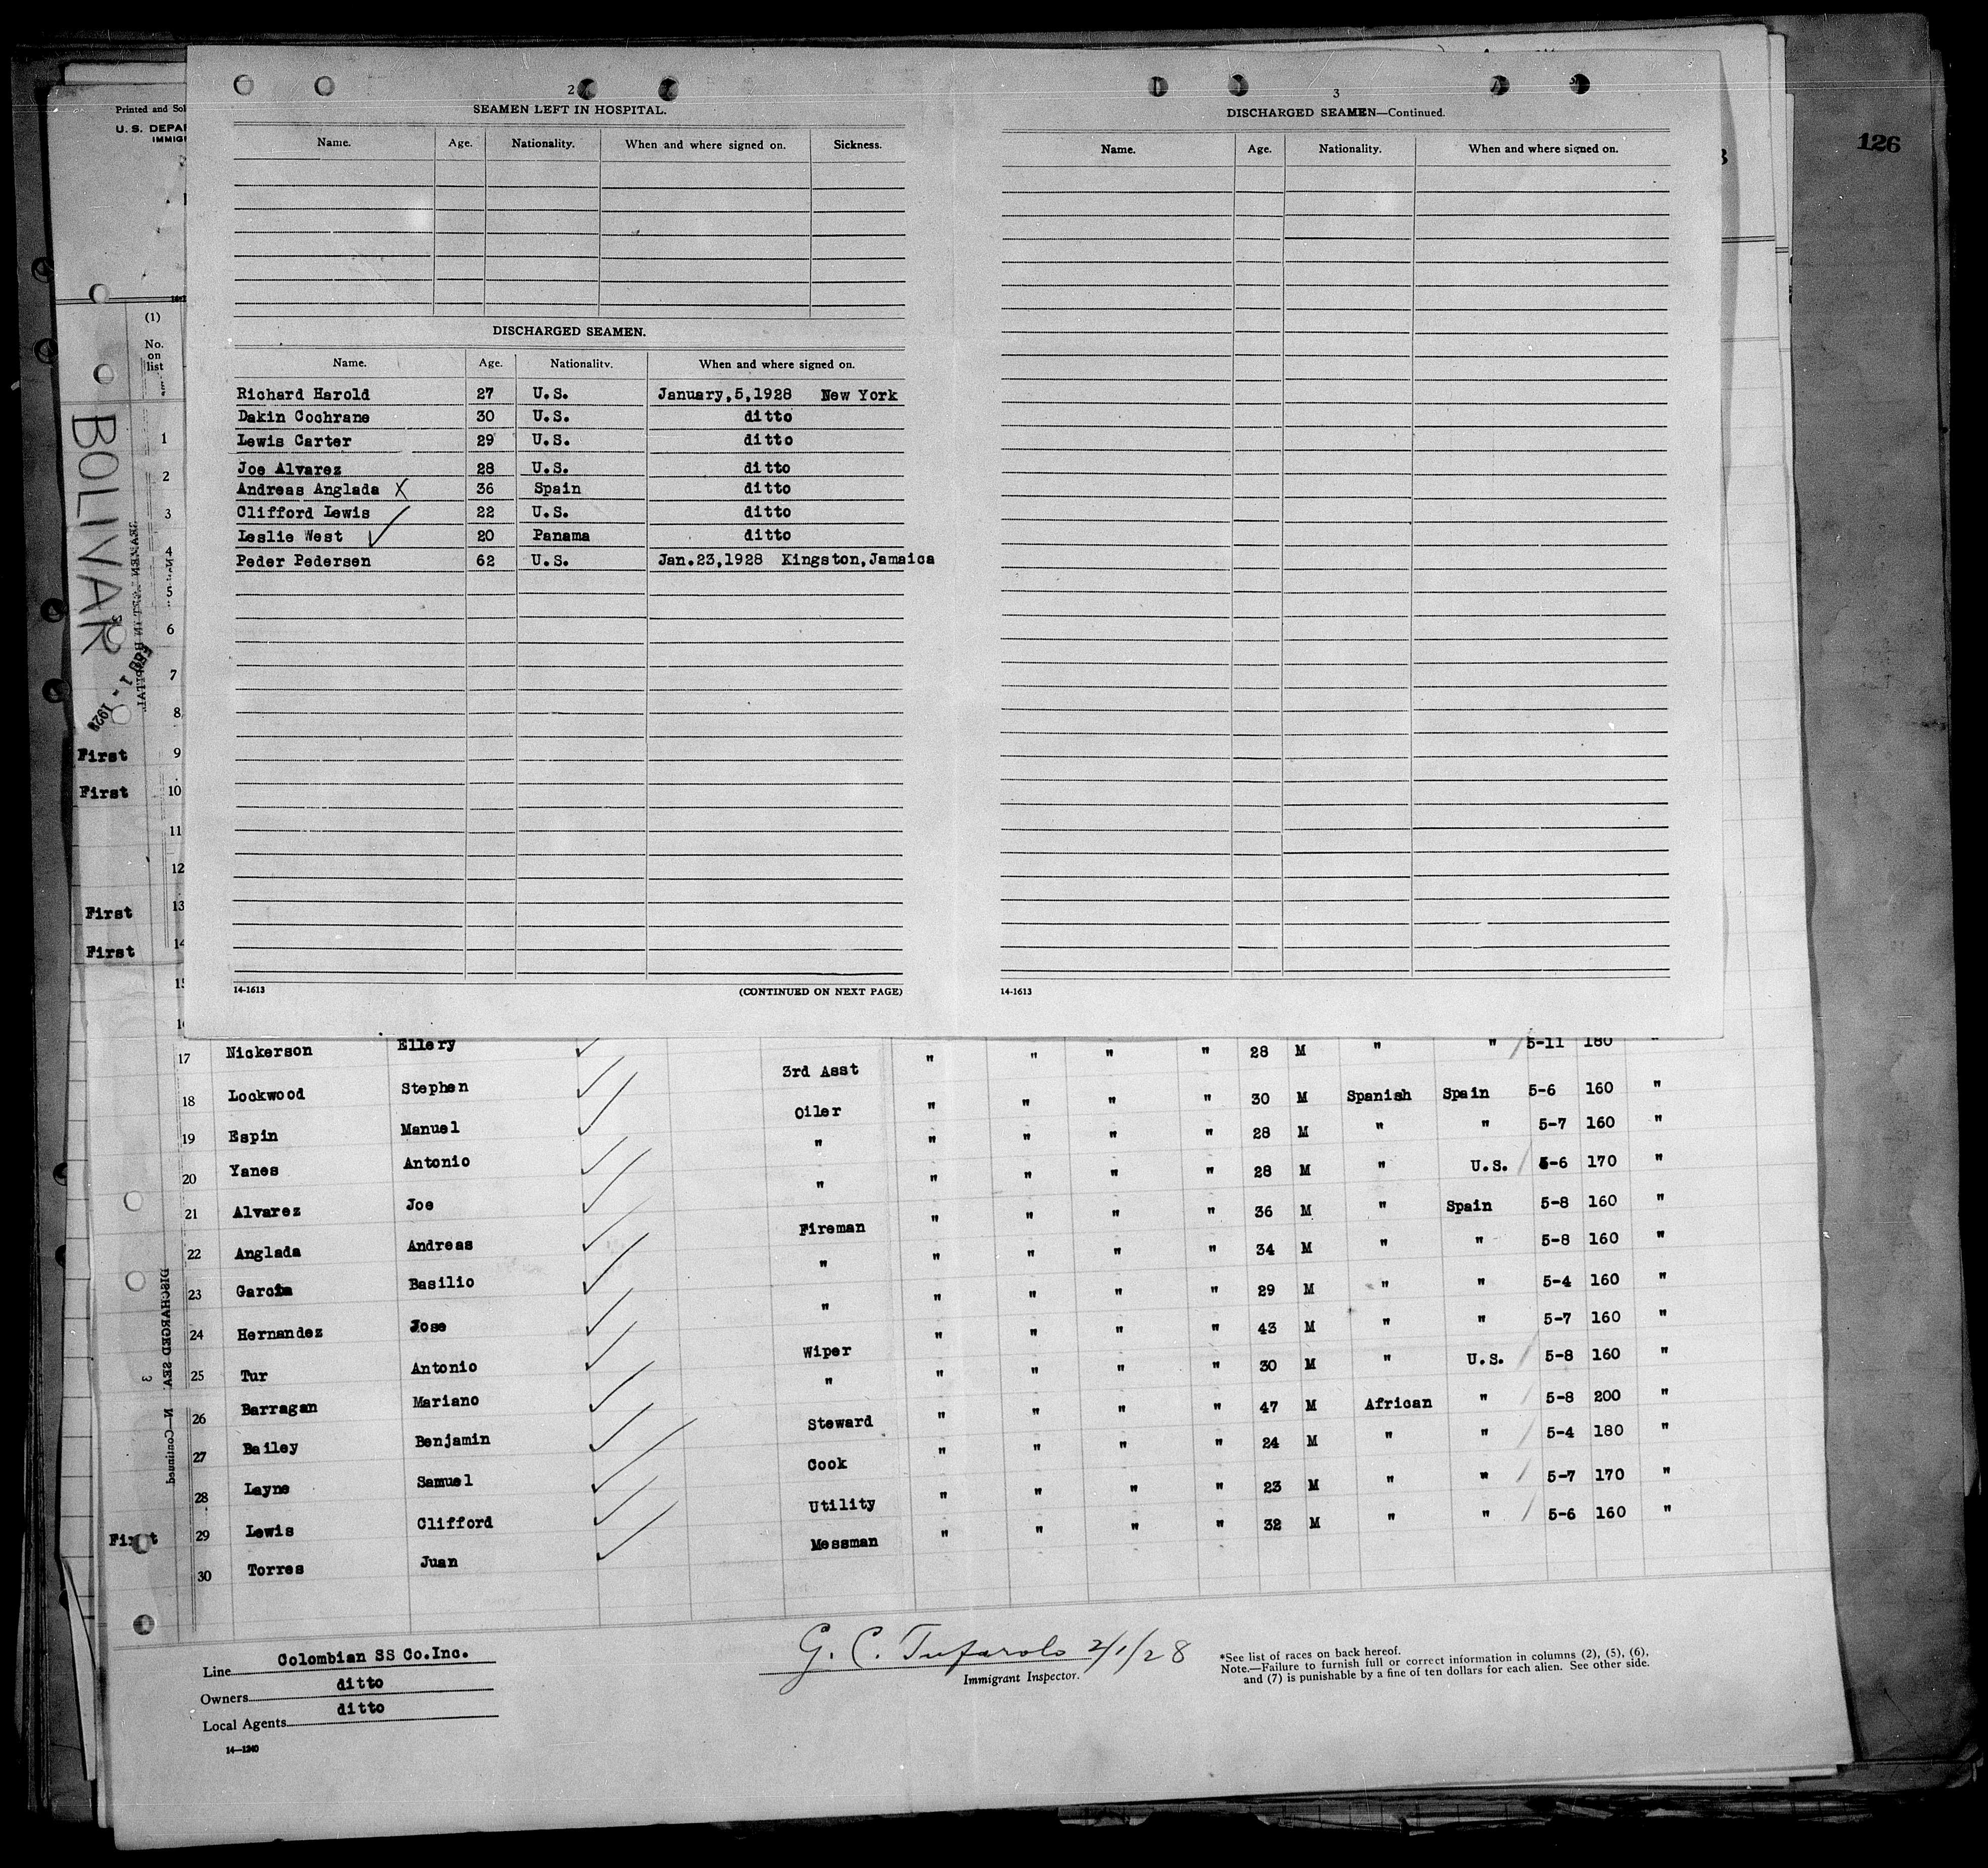 126
Printed and Sol
U. S. DEPAR
IMMIG
BOLIVAR
2
SEAMEN LEFT IN HOSPITAL.
Name. Age. Nationality. When and where signed on. Sickness.
DISCHARGED SEAMEN.
Name. Age. Nationality. When and where signed on.
Richard Harold 27 U.S. January,5,1928 New York
Dakin Cochrane 30 U.S. ditto
Lewis Carter 29 U.S. ditto
Joe Alvarez 28 U.S. ditto
Andreas Anglada X 36 Spain ditto
Clifford Lewis 22 U.S. ditto
Leslie West ✓ 20 Panama ditto
Peder Pedersen 62 U.S. Jan.23,1928 Kingston,Jamaica
14-1613 (CONTINUED ON NEXT PAGE)
3
DISCHARGED SEAMEN—Continued.
Name. Age. Nationality. When and where signed on.
14-1613
(1)
No.
on
list
1
2
3
4
5
6
7
8
First 9
First 10
11
12
First 13
First 14
17 Nickerson Ellery ✓ 3rd Asst " " " " 28 M " " / 5-11 180 "
18 Lockwood Stephen ✓ Oiler " " " " 30 M Spanish Spain 5-6 160 "
19 Espin Manuel ✓ " " " " " 28 M " " 5-7 160 "
20 Yanes Antonio ✓ " " " " " 28 M " U.S. / 5-6 170 "
21 Alvarez Joe ✓ Fireman " " " " 36 M " Spain 5-8 160 "
22 Anglada Andreas ✓ " " " " " 34 M " " 5-8 160 "
23 Garcia Basilio ✓ " " " " " 29 M " " 5-4 160 "
24 Hernandez Jose ✓ Wiper " " " " 43 M " " 5-7 160 "
25 Tur Antonio ✓ " " " " " 30 M " U.S. / 5-8 160 "
26 Barragan Mariano ✓ Steward " " " " 47 M African " / 5-8 200 "
27 Bailey Benjamin ✓ Cook " " " " 24 M " " / 5-4 180 "
28 Layne Samuel ✓ Utility " " " " 23 M " " / 5-7 170 "
First 29 Lewis Clifford ✓ Messman " " " " 32 M " " / 5-6 160 "
30 Torres Juan ✓
Line Colombian SS Co.Inc.
Owners ditto
Local Agents ditto
14—1240
G. C. Tufarolo 2/1/28
Immigrant Inspector.
*See list of races on back hereof.
Note.—Failure to furnish full or correct information in columns (2), (5), (6),
and (7) is punishable by a fine of ten dollars for each alien. See other side.